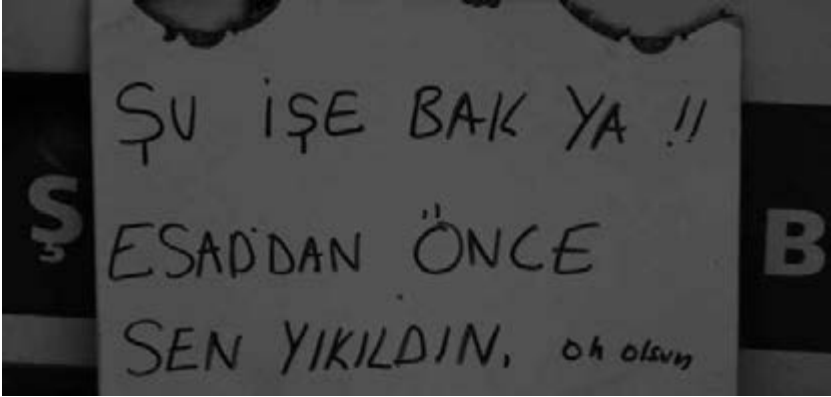 ŞU İŞE BAK YA !!
Ş
ESAD'DAN ÖNCE
B
SEN YIKILDIN. oh olsun